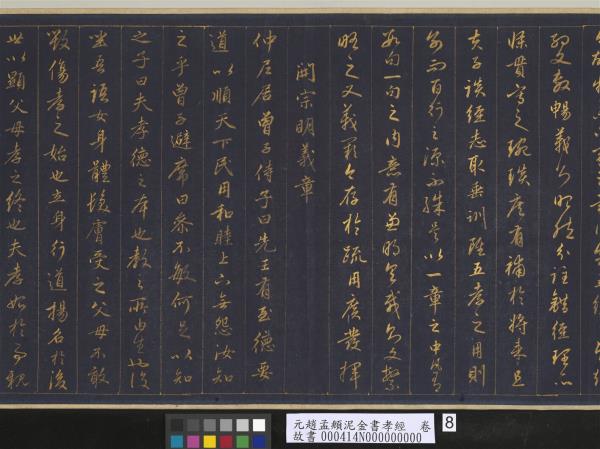 約文敷暢義則昭然分註錯經理亦
條貫寫之琬琰庶有補於將來且
夫子談經志取垂訓雖五孝之用則
別而百行之源不殊是以一章之中凡有
數句一句之內意有兼明具載則文繁
略之又義闕今存於疏用廣發揮
開宗明義章
仲尼居曾子侍子曰先王有至德要
道以順天下民用和睦上下無怨汝知
之乎曾子避席曰參不敏何足以知
之子曰夫孝德之本也教之所由生也復
坐吾語女身體髮膚受之父母不敢
毀傷孝之始也立身行道揚名於後
世以顯父母孝之終也夫孝始於事親
元趙孟頫泥金書孝經 卷
故書000414N000000000
8